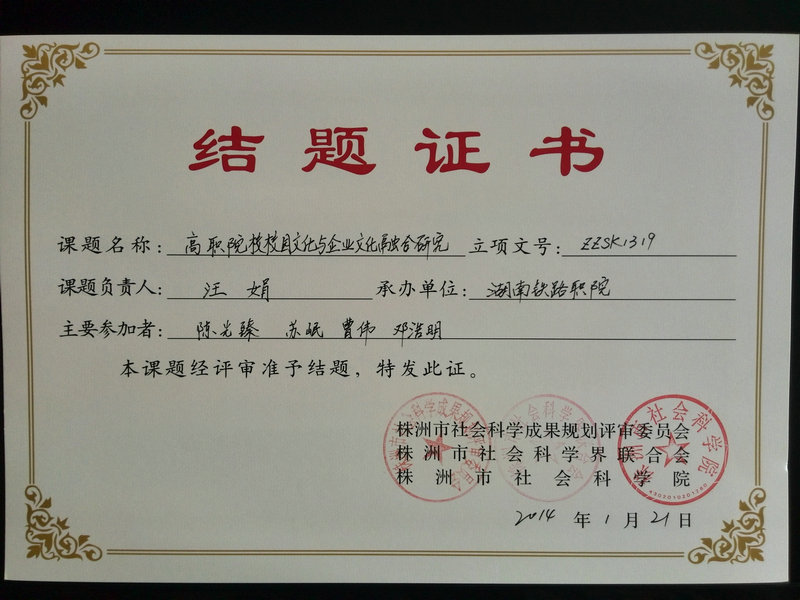 结题证书
课题名称：高职院校校园文化与企业文化融合研究 立项文号：ZZSK1319
课题负责人：汪娟 承办单位：湖南铁路职院
主要参加者：陈光臻 苏岷 曹伟 邓浩明
本课题经评审准予结题，特发此证。
株洲市社会科学成果规划评审委员会
株洲市社会科学界联合会
株洲市社会科学院
2014年1月21日
株洲市社会科学院
4302010201280